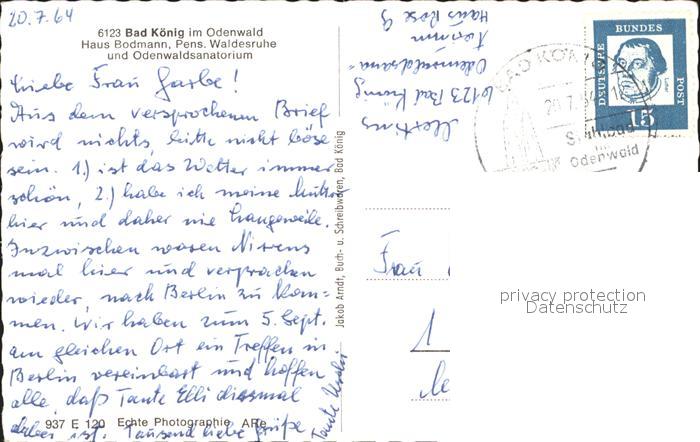 20.7.64
6123 Bad König im Odenwald
Haus Bodmann, Pens. Waldesruhe
und Odenwaldsanatorium
Liebe Frau Garbe!
Aus dem versprochenen Brief
wird nichts, bitte nicht böse
sein. 1.) ist das Wetter immer
schön, 2.) habe ich meine Mutter
hier und daher nie Langeweile.
Inzwischen waren
mal hier und versprachen
wieder, nach Berlin zu kom=
men. Wir haben zum 5. Sept.
am gleichen Ort ein Treffen in
Berlin vereinbart und hoffen
alle, daß Tante Elli diesmal
dabei ist. Tausend liebe Grüße
Tante
937 E 120 Echte Photographie ARe
Jakob Arndt, Buch- u. Schreibwaren, Bad König
6123 Bad König
Odenwaldsana=
torium
Haus Rose
BAD KÖNIG
20.7.64
Odenwald
DEUTSCHE
BUNDES
POST
15
Frau
1
privacy protection
Datenschutz